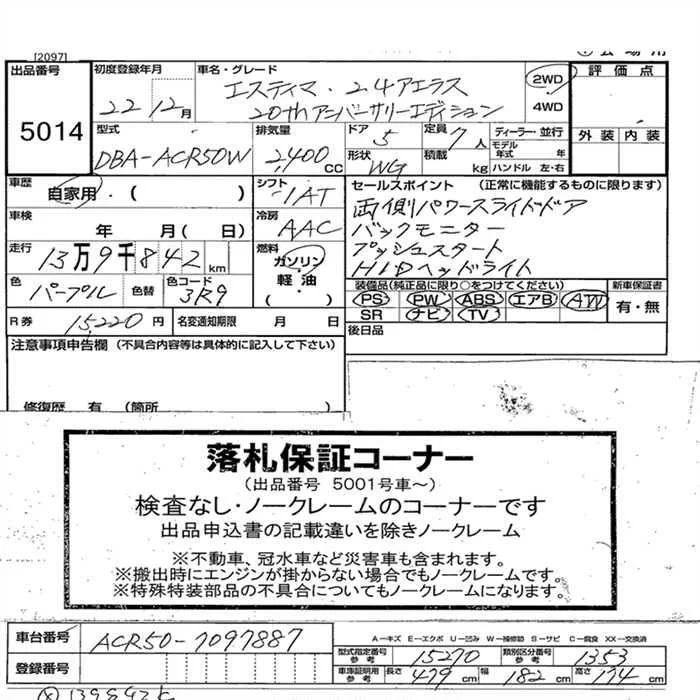 [2097]
出品番号 初度登録年月 車名・グレード 評価点
5014
22年12月
エスティマ・2.4アエラス
20thアニバーサリーエディション
2WD
4WD
外装 内装
型式 排気量 ドア 定員 ディーラー・並行
DBA-ACR50W 2,400cc 5 7人 モデル年式 年
形状 積載 kg ハンドル 左・右
WG
車歴 自家用・( ) シフト IAT
セールスポイント (正常に機能するものに限ります)
両側パワースライドドア
車検 年 月 ( 日) 冷房 AAC
バックモニター
走行 13万9千842km 燃料 ガソリン・軽油・( )
プッシュスタート
HIDヘッドライト
色 パープル 色替 色コード 3R9
装備品(純正品に限り○をつけてください) 新車保証書
PS PW ABS エアB AW 有・無
SR ナビ TV
R券 15,220円 名変通知期限 月 日
後日品
注意事項申告欄 (不具合内容等は具体的に記入して下さい)
修復歴 有 (箇所
落札保証コーナー
(出品番号 5001号車~)
検査なし・ノークレームのコーナーです
出品申込書の記載違いを除きノークレーム
※不動車、冠水車など災害車も含まれます。
※搬出時にエンジンが掛からない場合でもノークレームです。
※特殊特装部品の不具合についてもノークレームになります。
車台番号 ACR50-7097887
A-キズ E-エクボ U-凹み W-補修跡 S-サビ C-腐食 XX-交換済
型式指定番号参考 15270 類別区分番号参考 1353
登録番号
車庫証明用参考 長さ 479cm 幅 182cm 高さ 174cm
139842k